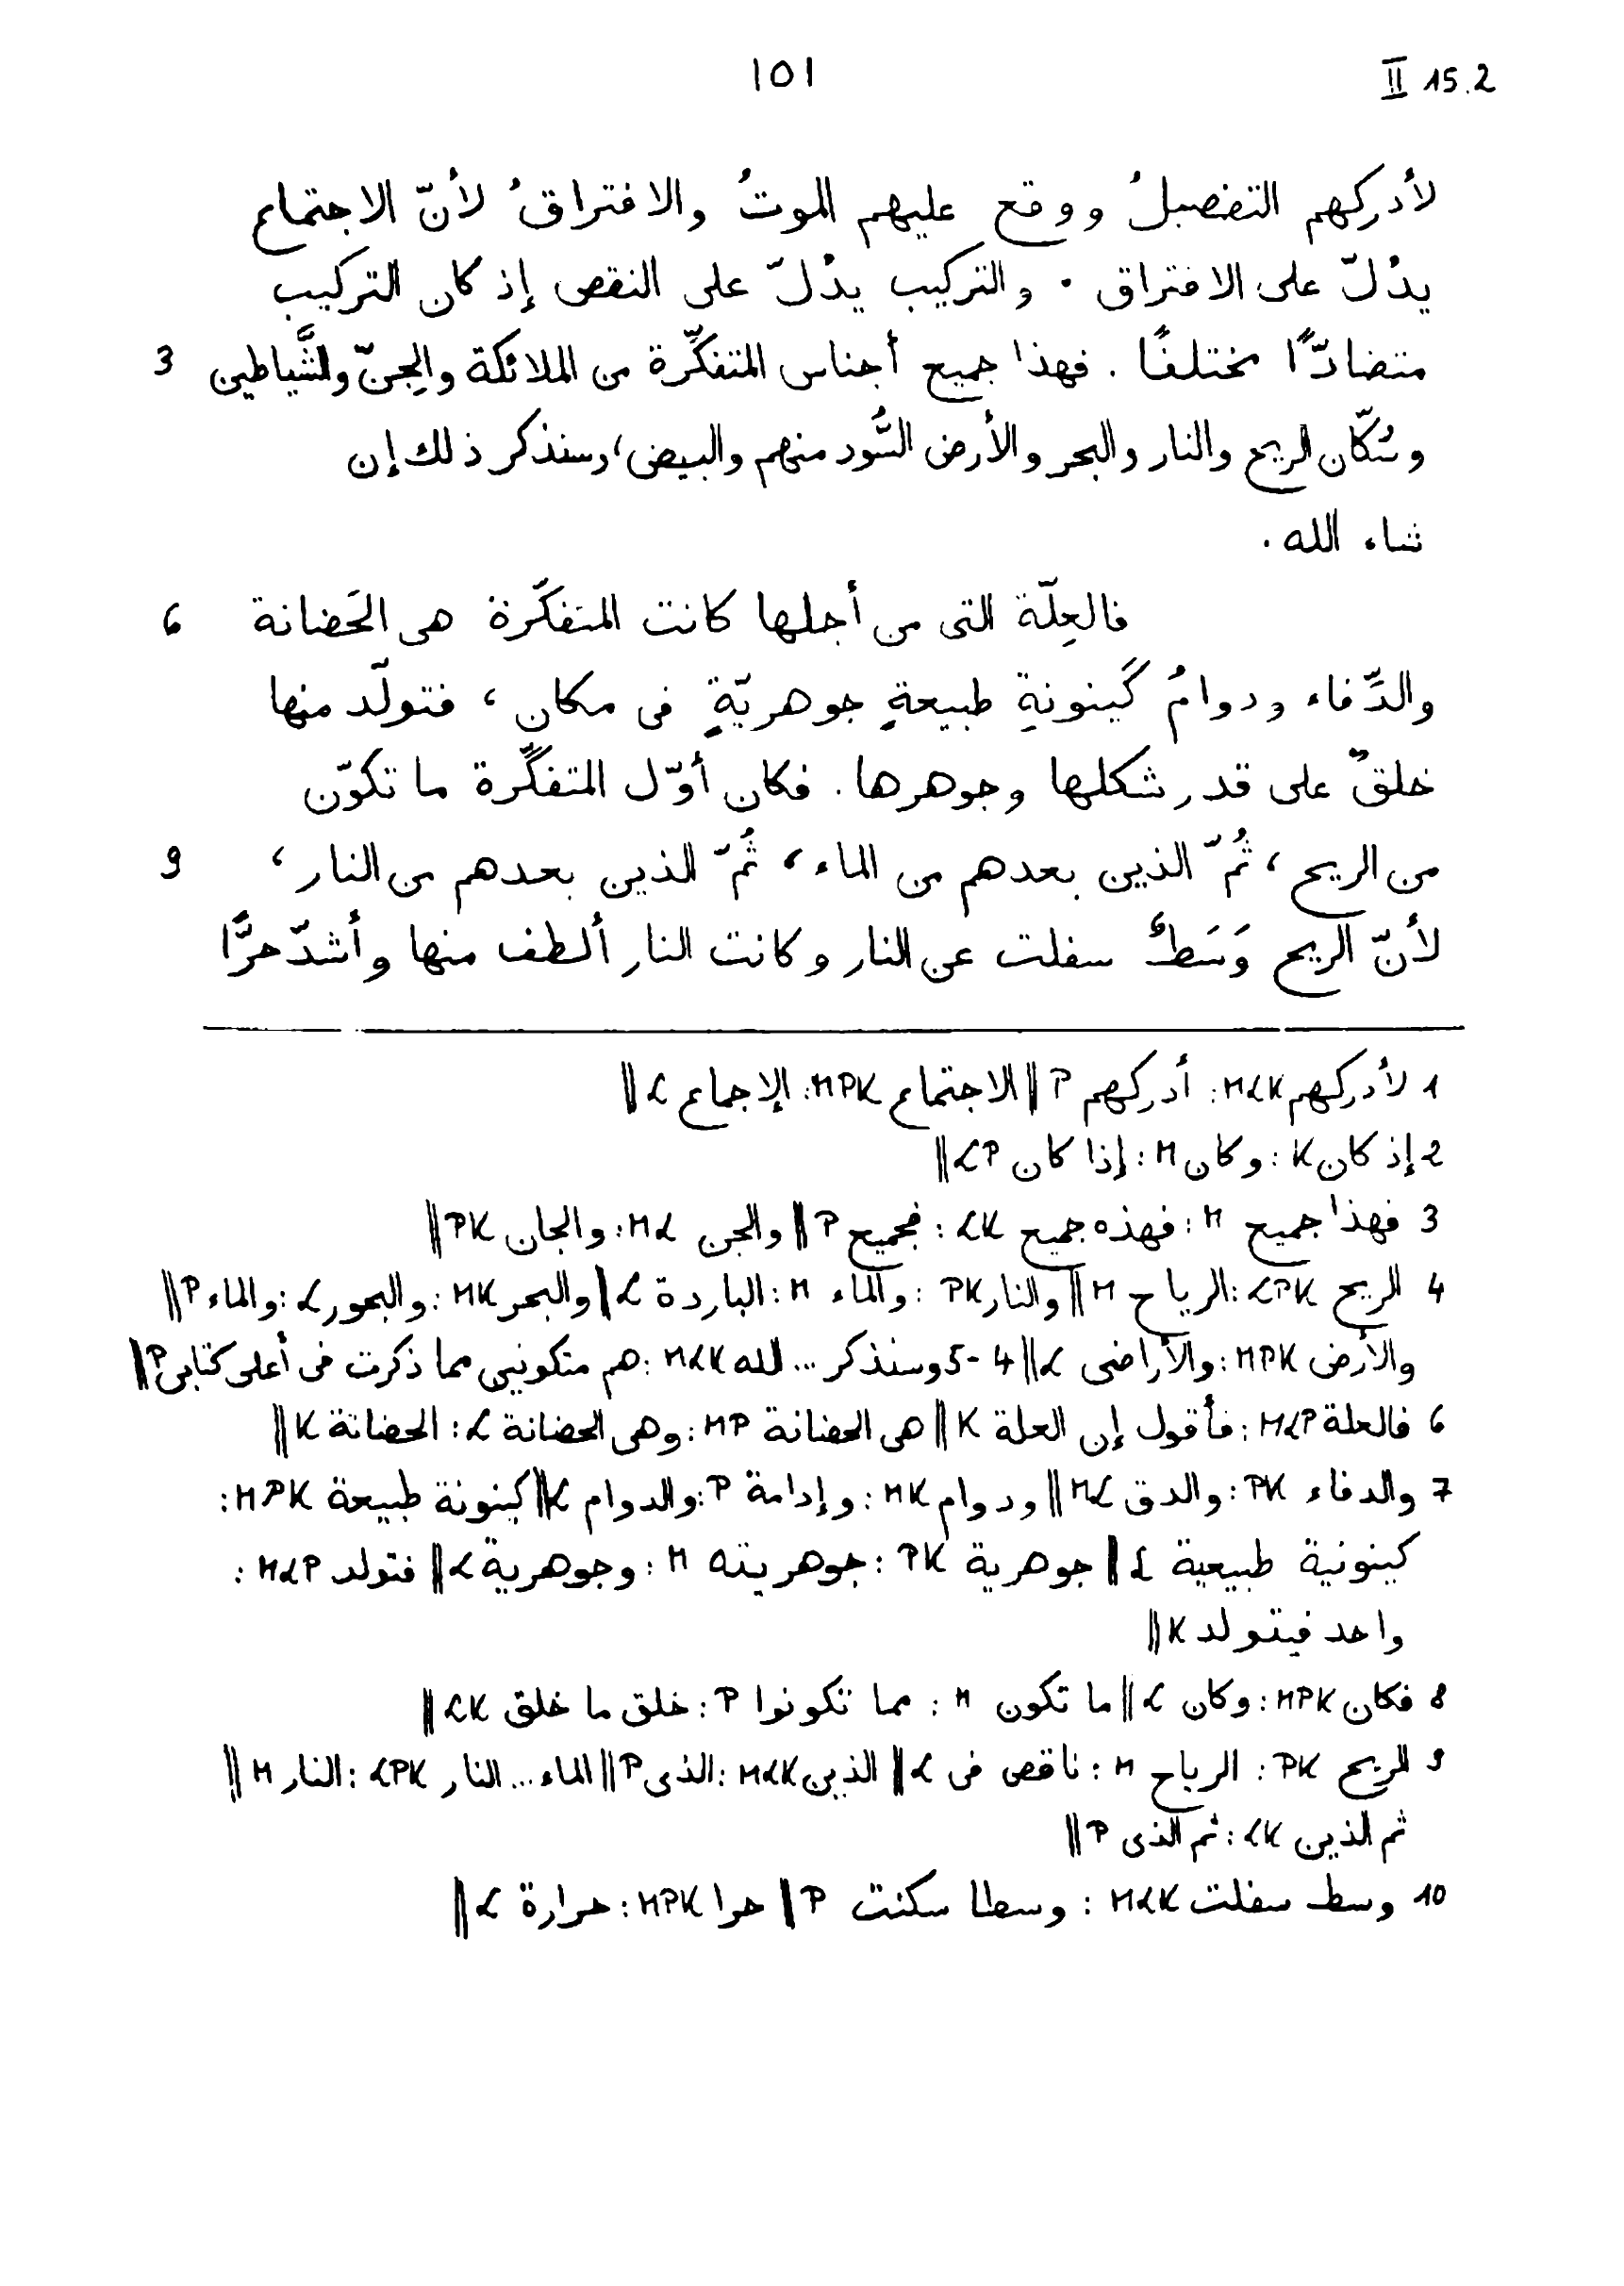 ١٥١
II 15.2
لأدركهم التفصيلُ ووقع عليهم الموتُ والافتراقُ لأنّ الاجتماع
يدُلّ على الافتراق . والتركيب يدُلّ على النقص إذ كان التركيب
متضادًّا مختلفًا . فهذا جميع أجناس المتفكِّرة من الملائكة والجِنّ والشَّياطين 3
وسُكّان الريح والنار والبحر والأرض السُّود منهم والبيض، وسنذكر ذلك إن
شاء الله .
فالعِلّة التى من أجلها كانت المتفكّرة هى الحَضانة 6
والدِّفاء ودوامُ كَينونةِ طبيعةٍ جوهريّةٍ فى مكان ، فتولّد منها
خلقٌ على قدر شكلها وجوهرها . فكان أوّل المتفكِّرة ما تكوّن
من الريح ، ثُمّ الذين بعدهم من الماء ، ثُمّ الذين بعدهم من النار ، 9
لأنّ الريح وَسَطٌ سفلت عن النار وكانت النار ألطف منها وأشدّ حرًّا
1 لأدركهم MLK : أدركهم P || الاجتماع MPK : الإجماع L ||
2 إذ كان K : وكان M : إذا كان LP ||
3 فهذا جميع M : فهذه جميع LK : فجميع P || والجن ML : والجان PK ||
4 الريح LPK : الرياح M || والنار PK : والماء M : الباردة L || والبحر MK : والبحور L : والماء P ||
والأرض MPK : والأراضى L || 4-5 وسنذكر ... الله MLK : هم متكونين مما ذكرت فى أعلى كتابى P ||
6 فالعلة MLP : فأقول إن العلة K || هى الحضانة MP : وهى الحضانة L : الحضانة K ||
7 والدفاء PK : والدق ML || ودوام MK : وإدامة P : والدوام L || كينونة طبيعة MPK :
كينونية طبيعية L || جوهرية PK : جوهريته M : وجوهرية L || فتولد MLP :
واحد فيتولد K ||
8 فكان MPK : وكان L || ما تكون M : مما تكونوا P : خلق ما خلق LK ||
9 الريح PK : الرياح M : ناقص فى L || الذين MLK : الذى P || الماء ... النار LPK : النار M ||
ثم الذين LK : ثم الذى P ||
10 وسط سفلت MLK : وسطا سكنت P || حرا MPK : حرارة L ||